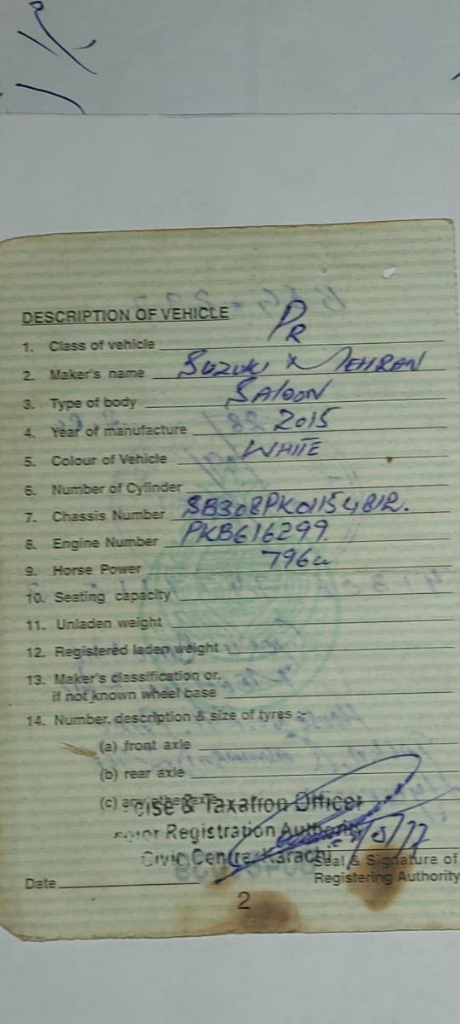 DESCRIPTION OF VEHICLE
1. Class of vehicle PR
2. Maker's name SUZUKI X MEHRAN
3. Type of body SALOON
4. Year of manufacture 2015
5. Colour of Vehicle WHITE
6. Number of Cylinder
7. Chassis Number SB308PK01154812.
8. Engine Number PKB616299.
9. Horse Power 796cc
10. Seating capacity
11. Unladen weight
12. Registered laden weight
13. Maker's classification or.
if not known wheel base
14. Number, description & size of tyres :-
(a) front axle
(b) rear axle
(c)
cise & Taxation Officer
Registration Authority
Civic Centre, Karachi
Seal & Signature of
Date
Registering Authority
2